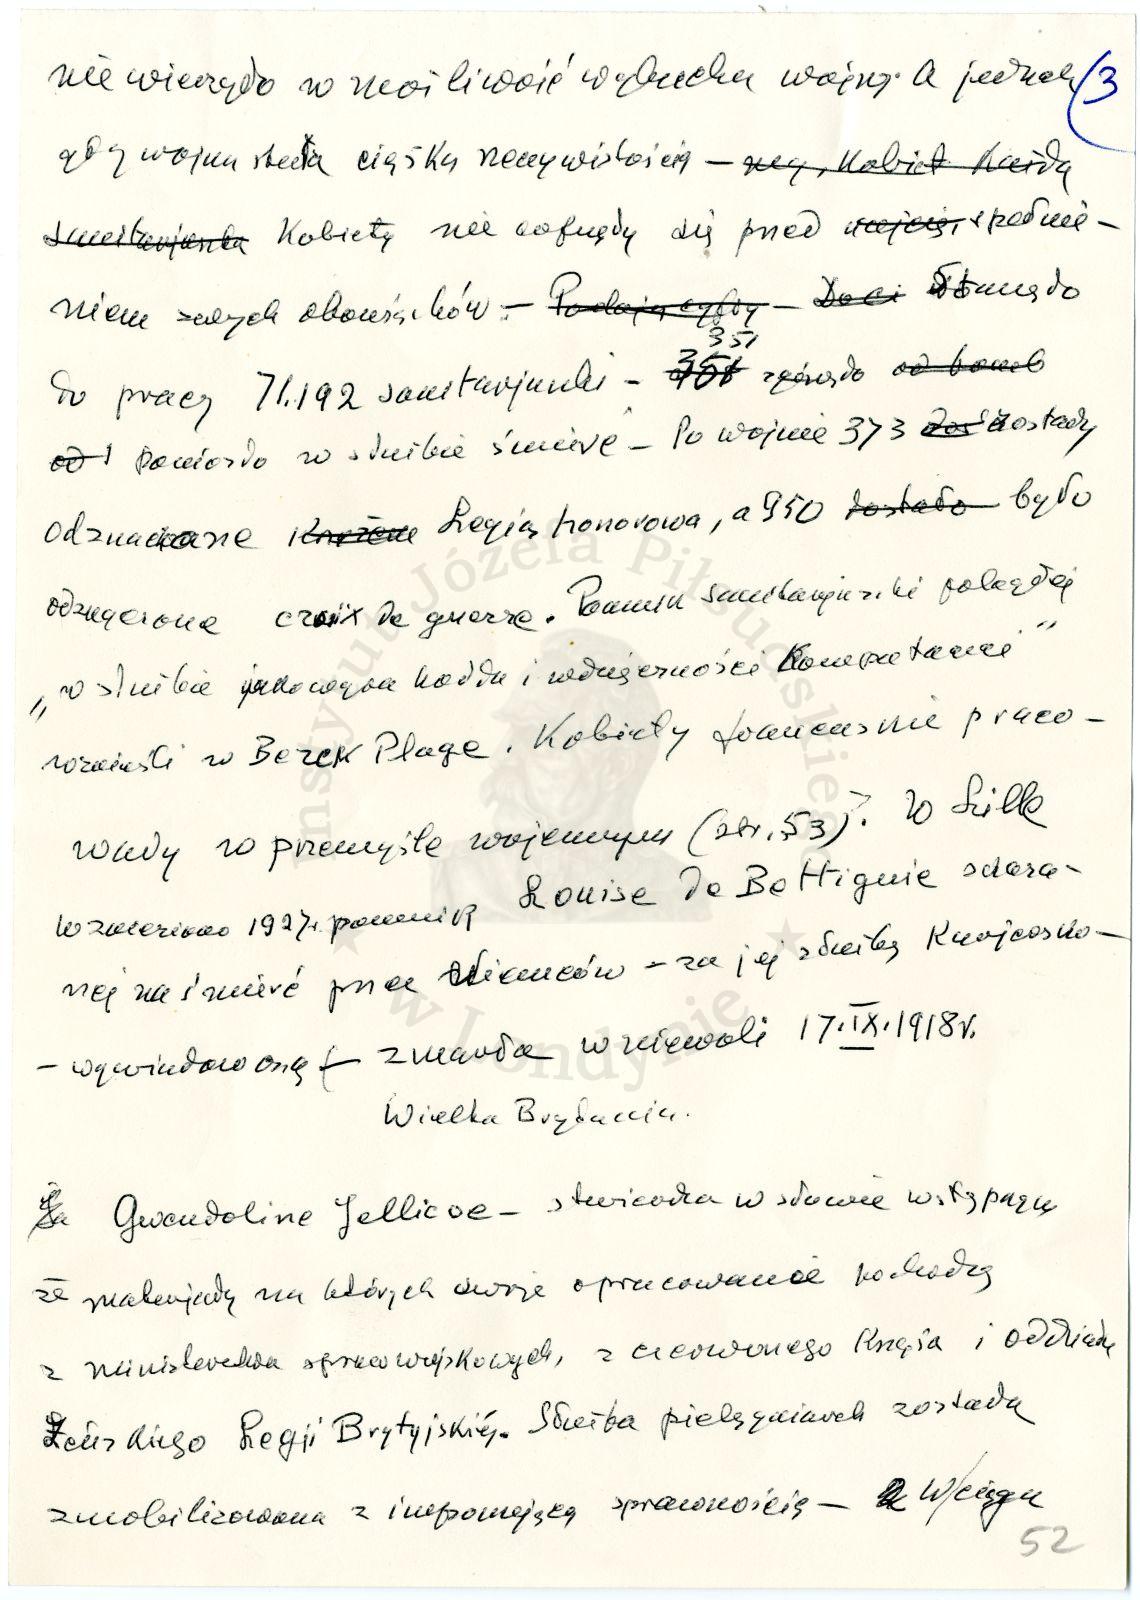 nie wierzyło w możliwość wybuchu wojny. A jednak (3
gdy wojna stała ciężką rzeczywistością – Kobiet każda
sanitarjuszka Kobiety nie cofnęły się przed spełnie–
niem swych obowiązków – Podają cyfry –
do pracy 71.192 sanitarjuszki – 351 351 zginęło od bomb
od poniosło w służbie śmierć – Po wojnie 373 zostały
odznaczone Krzyżem Legią honorową, a 950 dostało było
odznaczone croix de guerre. Pomnik sanitarjuszki poległej
„w służbie hołdu i wdzięczności Kompatanci”
wznieśli w Berck Plage. Kobiety francuskie praco–
wały w przemyśle wojennym (str. 53). W Lille
wzniesiono 1927r. pomnik Louise de Bettignie skaza–
nej na śmierć przez Niemców – za jej służbę
– wywiadowczą – zmarła w niewoli 17.IX.1918r.
Wielka Brytania.
Gwendoline Jellicoe – stwierdza w słowie wstępnym
że materjały na których swoje opracowanie pochodzą
z ministerstwa spraw wojskowych, z czerwonego Krzyża i oddziału
Żeńskiego Legji Brytyjskiej. Służba pielęgniarek została
zmobilizowana z imponującą sprawnością – W ciągu
52
Instytut Józefa Piłsudskiego
w Londynie